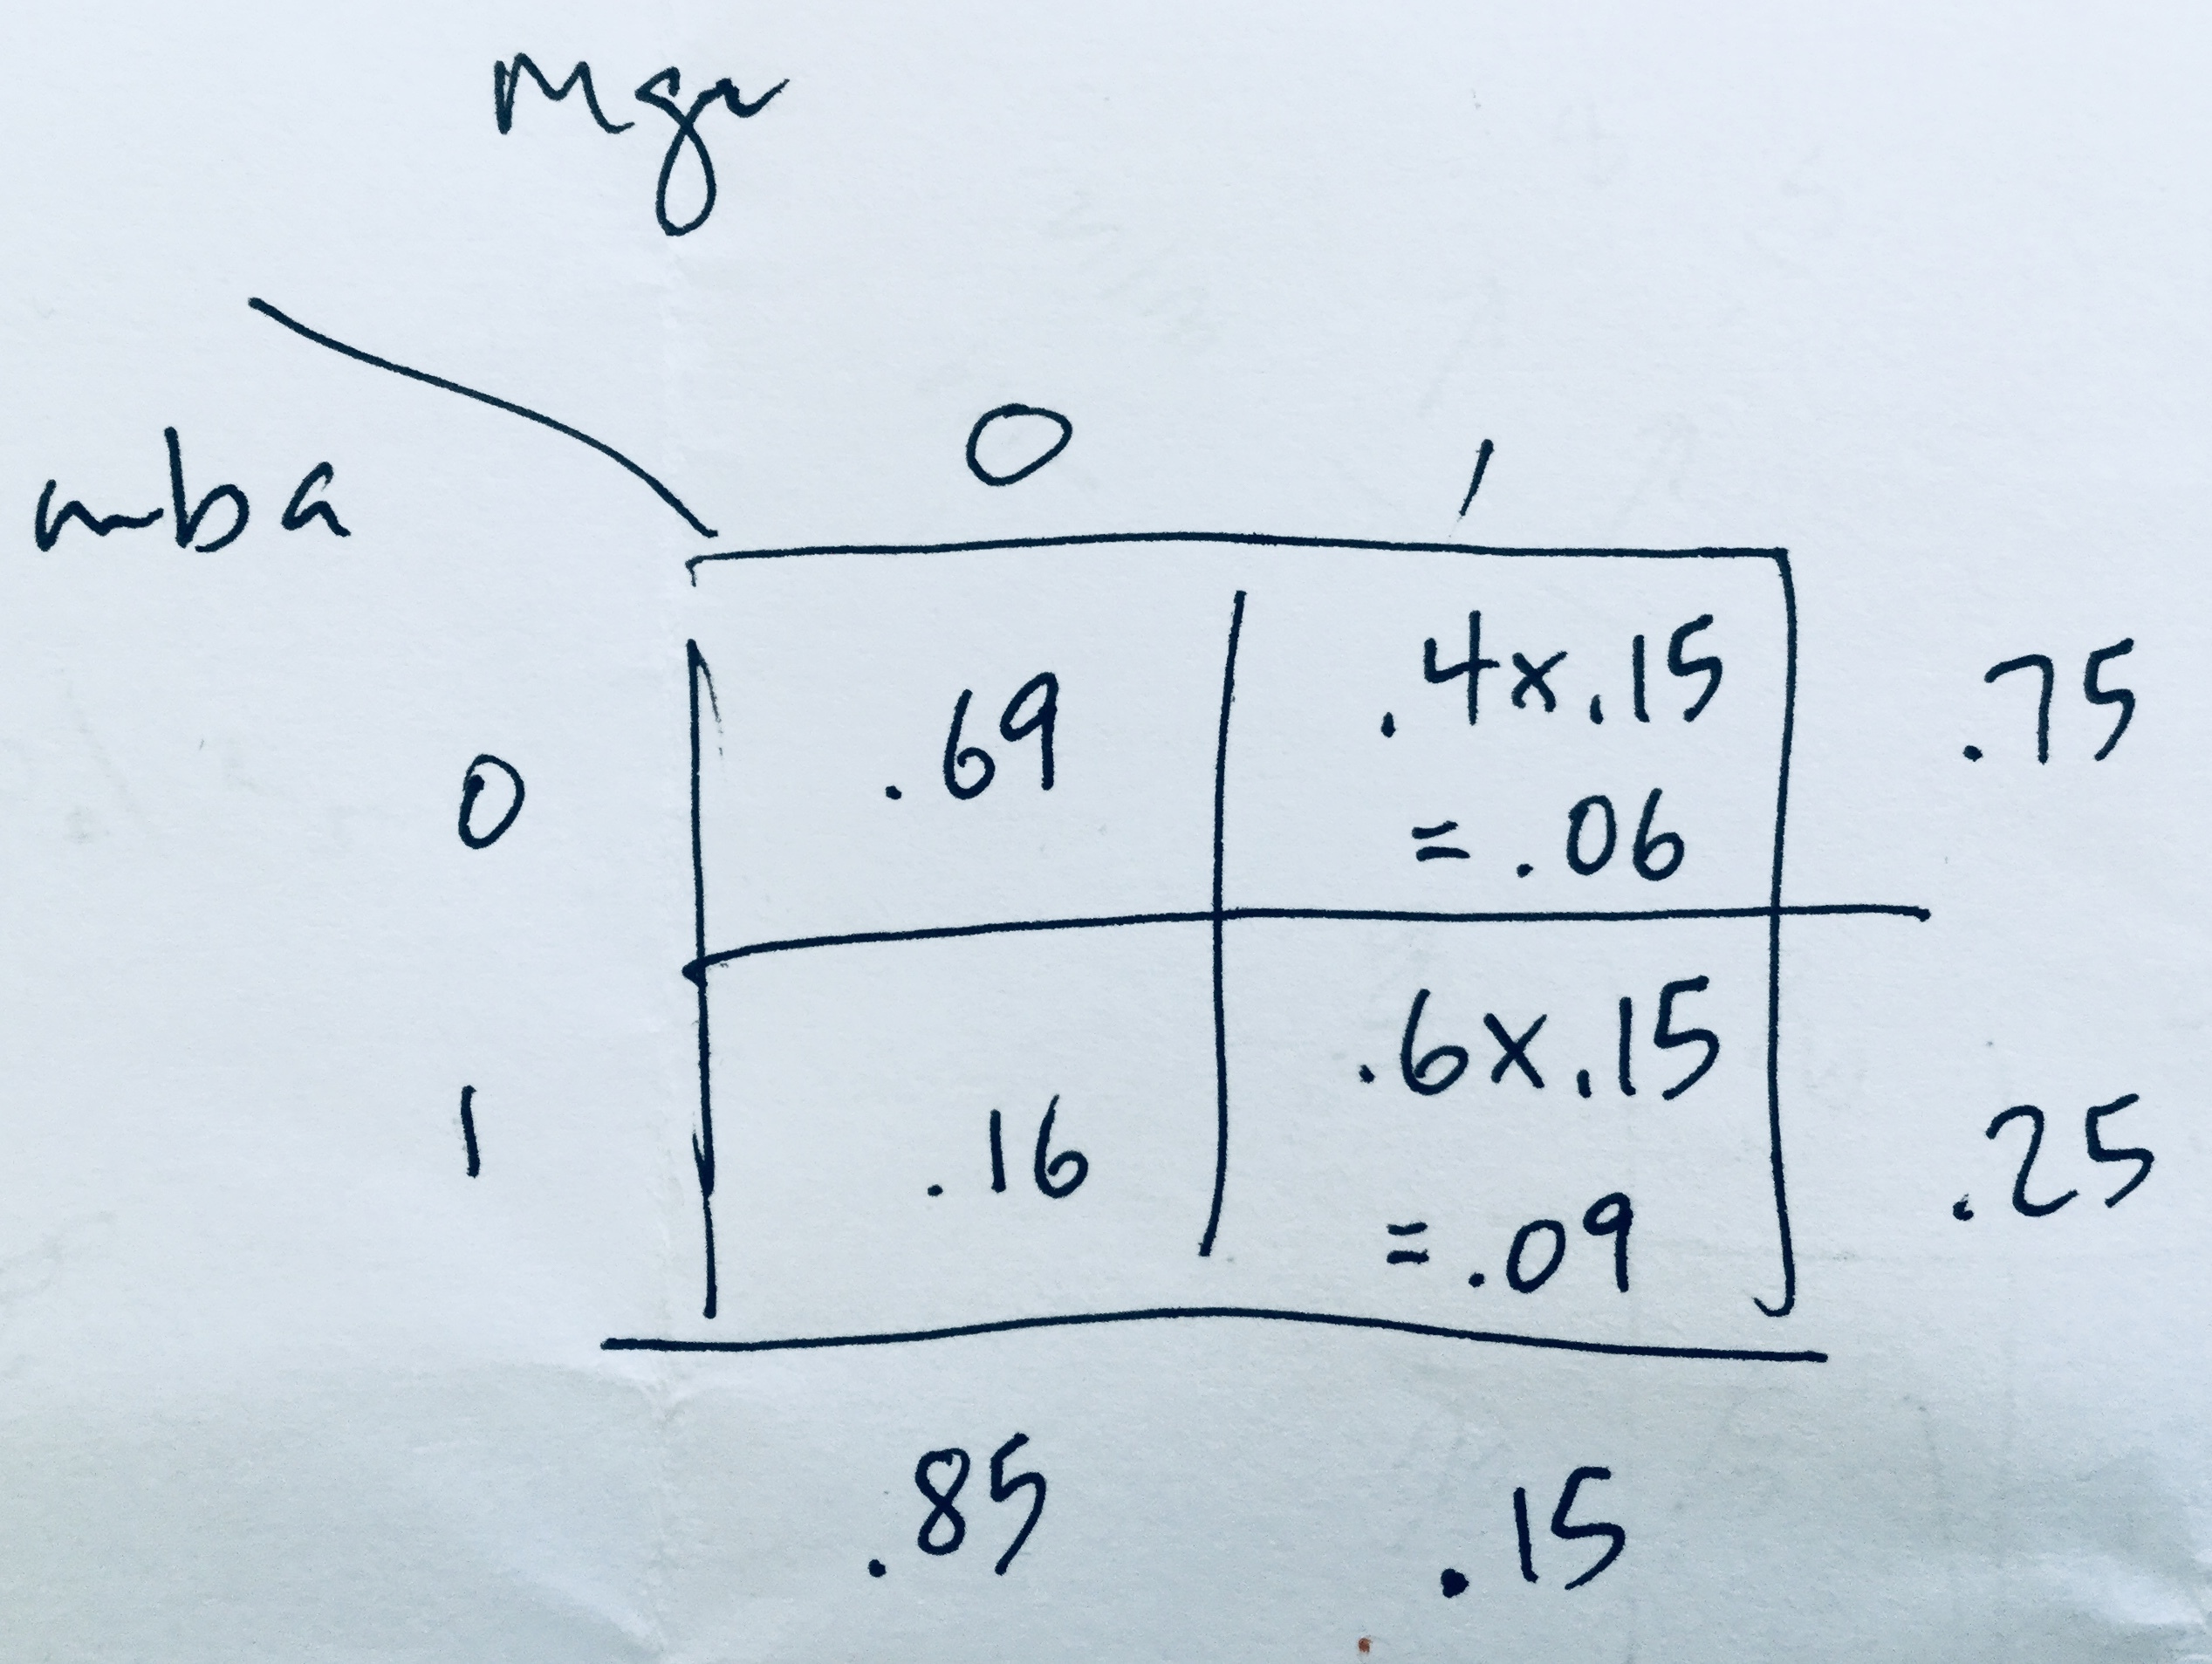 Mgr
mba
0 1
0 .69 .4x.15 .75
= .06
1 .16 .6x.15 .25
= .09
.85 .15